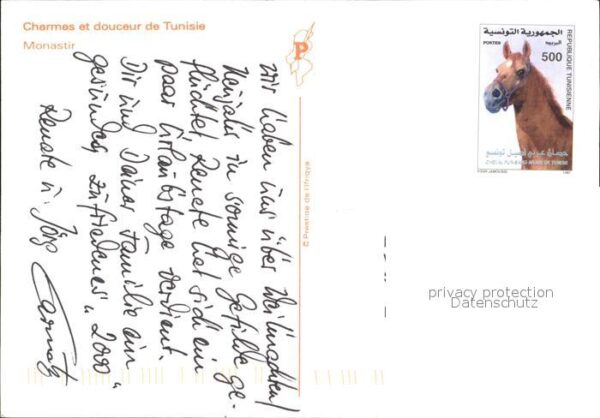 Charmes et douceur de Tunisie
Monastir
Wir haben uns über Weihnachten/
Neujahr in sonnige Gefilde ge-
flüchtet. Renate hat sich ein
paar Urlaubstage verdient.
Dir und Deiner Familie ein
gesundes, zufriedenes "2000"
Renate u. Jörg
© Prestige de l'Afrique
الجمهورية التونسية
POSTES
البريد
500
REPUBLIQUE TUNISIENNE
حصان عربي أصيل تونسي
CHEVAL PUR SANG ARABE DE TUNISIE
1997
privacy protection
Datenschutz